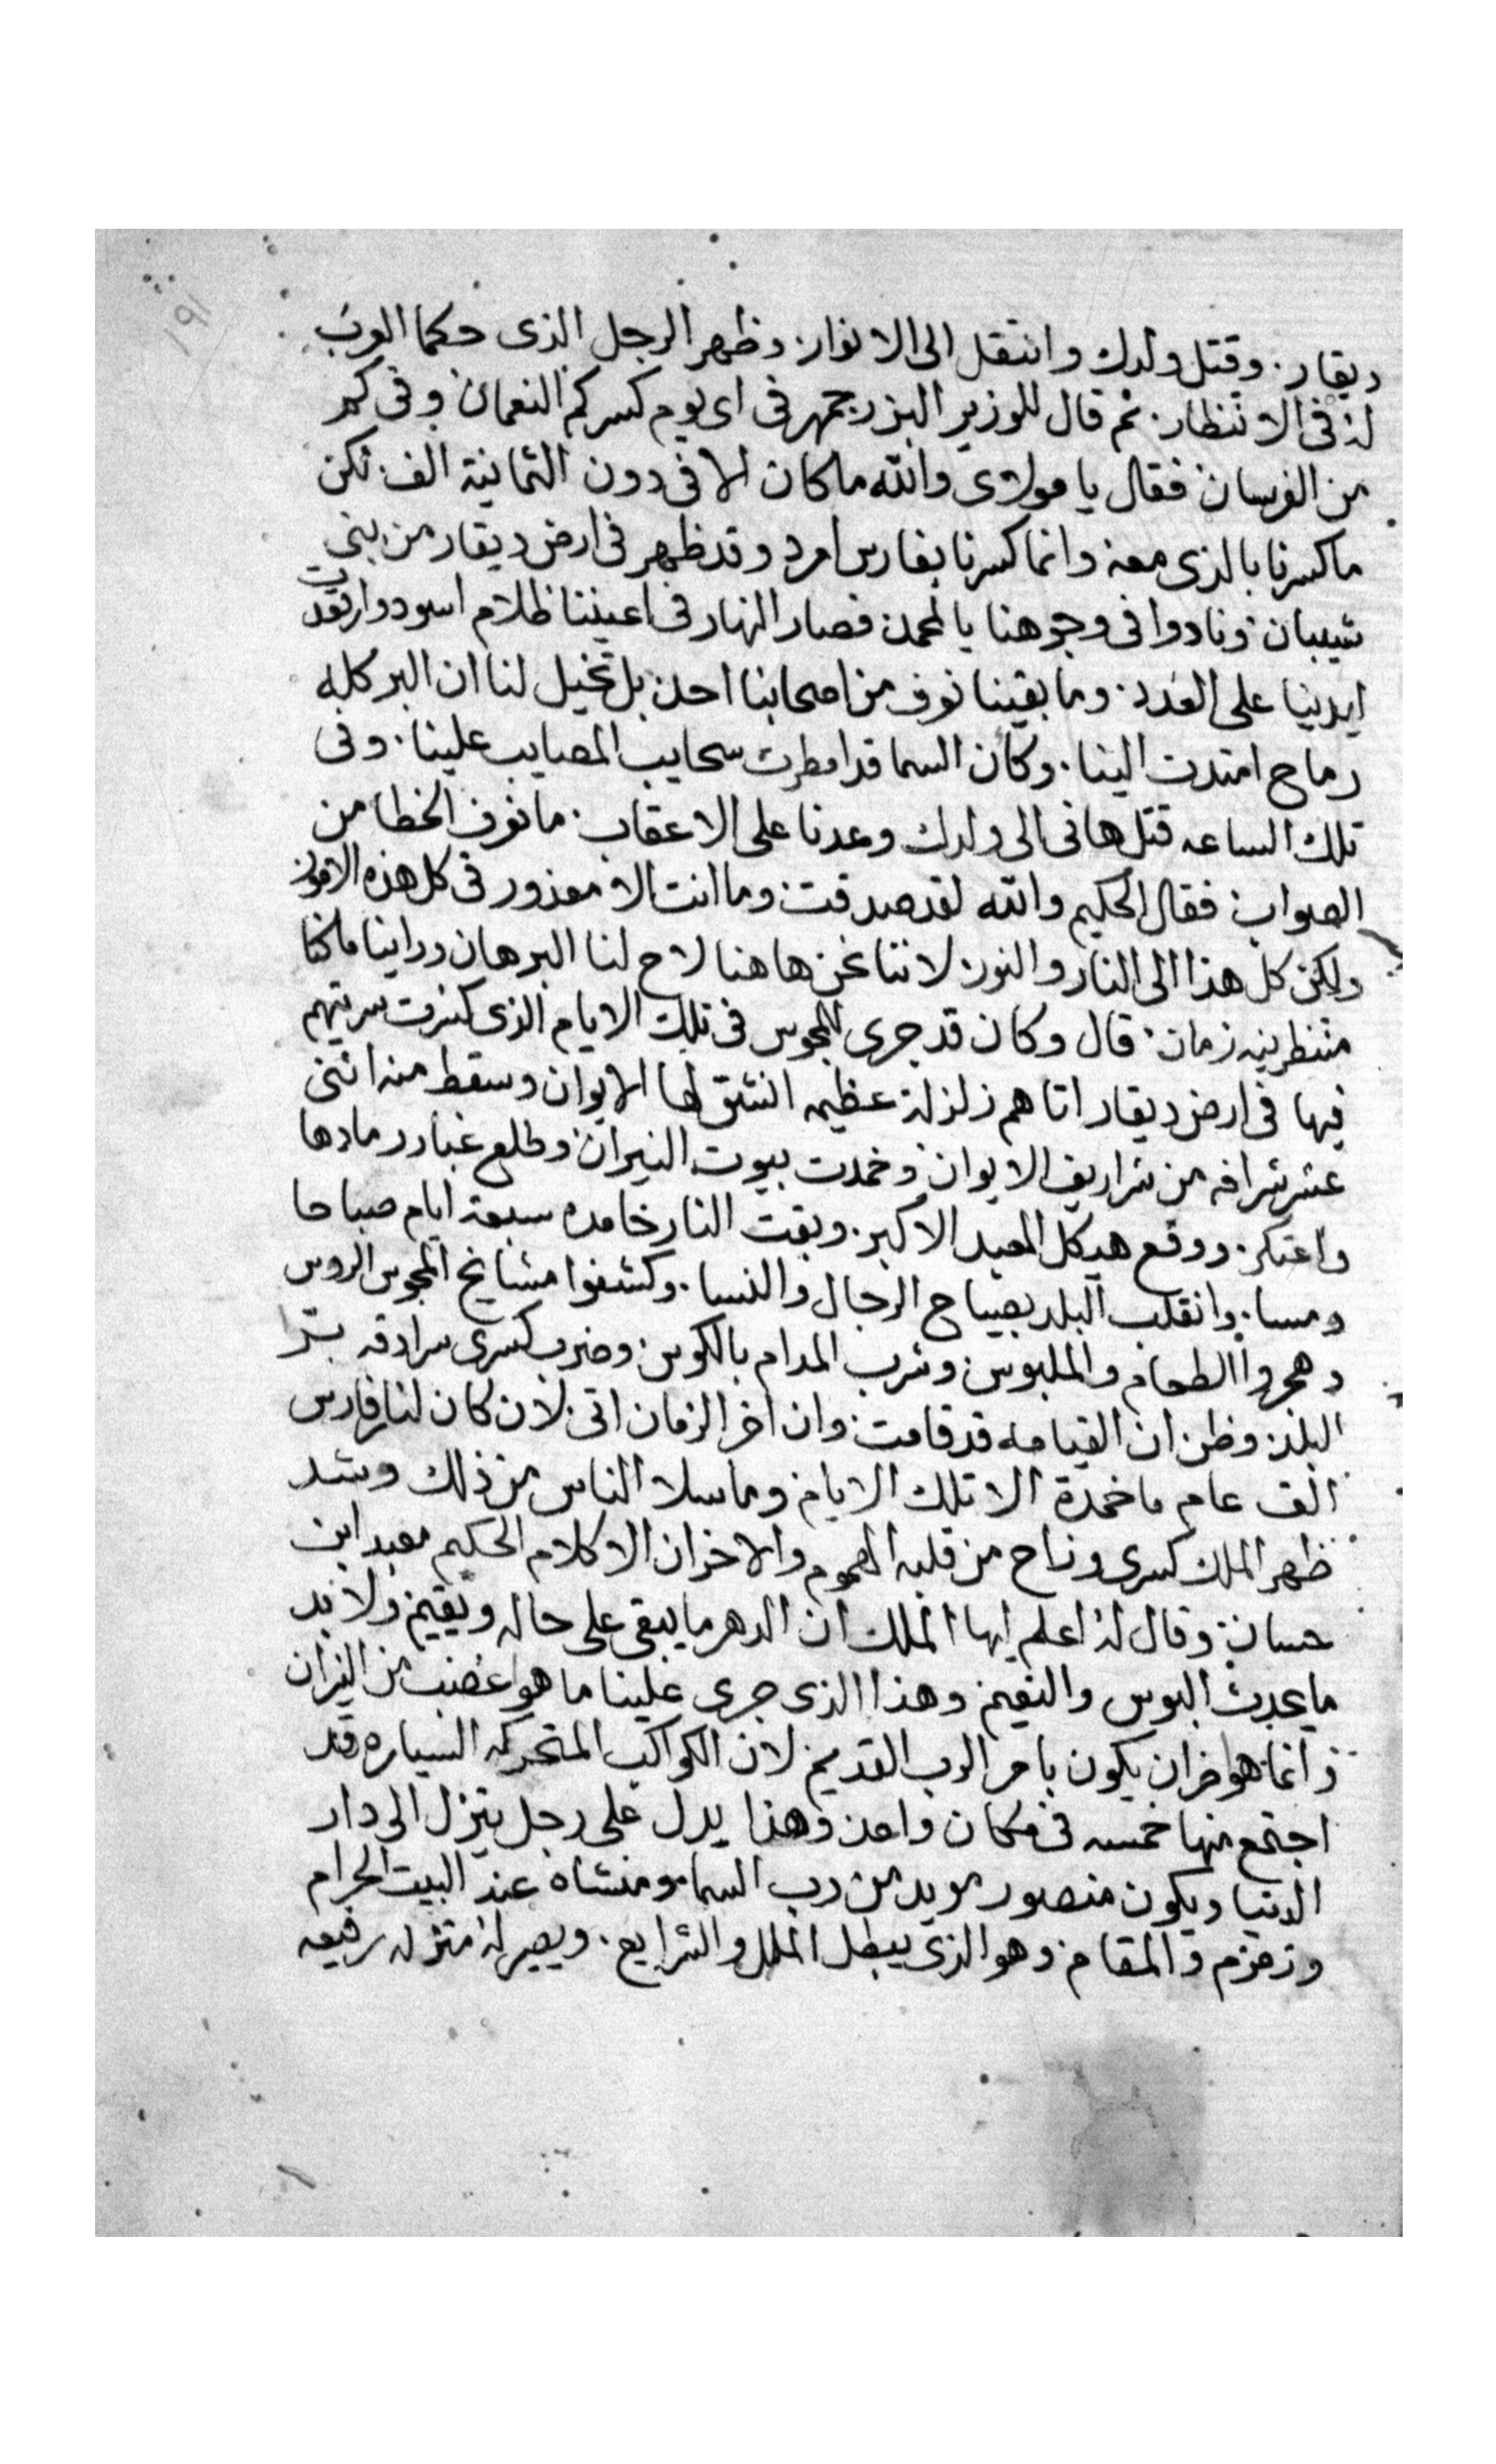 ١٩١
ديقار. وقتل ولدك وانتقل الى الانوار. وظهر الرجل الذى حكما العرب
له فى الانتظار. ثم قال للوزير البزرجمهر فى اى يوم كسركم النعمان وفى كم
من الفرسان فقال يا مولاى والله ما كان الا فى دون الثمانية الف. لكن
ما كسرنا بالذى معه وانما كسرنا بفارس امرد وقد ظهر فى ارض ديقار من بنى
شيبان ونادوا فى وجوهنا يا لمحمد فصار النهار فى اعيننا ظلام اسود وارتعدت
ايدينا على العدد. وما بقينا نعرف من اصحابنا احد. بل تخيل لنا ان البر كله
رماح امتدت الينا. وكأن السما قد امطرت سحايب المصايب علينا. وفى
تلك الساعه قتل هانى الى ولدك وعدنا على الاعقاب. ما نعرف الخطا من
الصواب. فقال الحكيم والله لقد صدقت وما انت الا معذور فى كل هذه الامور
ولكن كل هذا الى النار والنور. لاننا نحن هاهنا لاح لنا البرهان وراينا ما كنا
منتظرينه زمان. قال وكان قد جرى للمجوس فى تلك الايام الذى كسرت سريتهم
فيها فى ارض ديقار اتاهم زلزلة عظيمه انشق لها الايوان وسقط منه اثنى
عشر شرافه من شراريف الايوان وخمدت بيوت النيران وطلع غبار رمادها
واعتكر. ووقع هيكل المعبد الاكبر. وبقت النار خامده سبعة ايام صباحا
ومسا. وانقلب البلد بصياح الرجال والنسا. وكشفوا مشايخ المجوس الروس
وهجروا الطعام والملبوس وشرب المدام بالكوس. وضرب كسرى سرادقه برّا
البلد. وظن ان القيامه قد قامت. وان اخر الزمان اتى لان كان لنار فارس
الف عام ما خمدة الا تلك الايام وما سلا الناس من ذلك وشد
ظهر الملك كسرى وزاح من قلبه الهموم والاحزان الا كلام الحكيم معبد ابن
حسان وقال له اعلم ايها الملك ان الدهر ما يبقى على حاله ويقيم ولا بد
ما يحدث البوس والنعيم وهذا الذى جرى علينا ما هو غضب من النيران
وانما هو اخر ان يكون بامر الرب القديم لان الكواكب المتحركه السياره قد
اجتمع منها خمسه فى مكان واحد وهذا يدل على رجل ينزل الى دار
الدنيا ويكون منصور مويد من رب السما. ومنشاه عند البيت الحرام
وزمزم والمقام وهو الذى يبطل الملل والشرايع. ويصير له منزله رفيعه